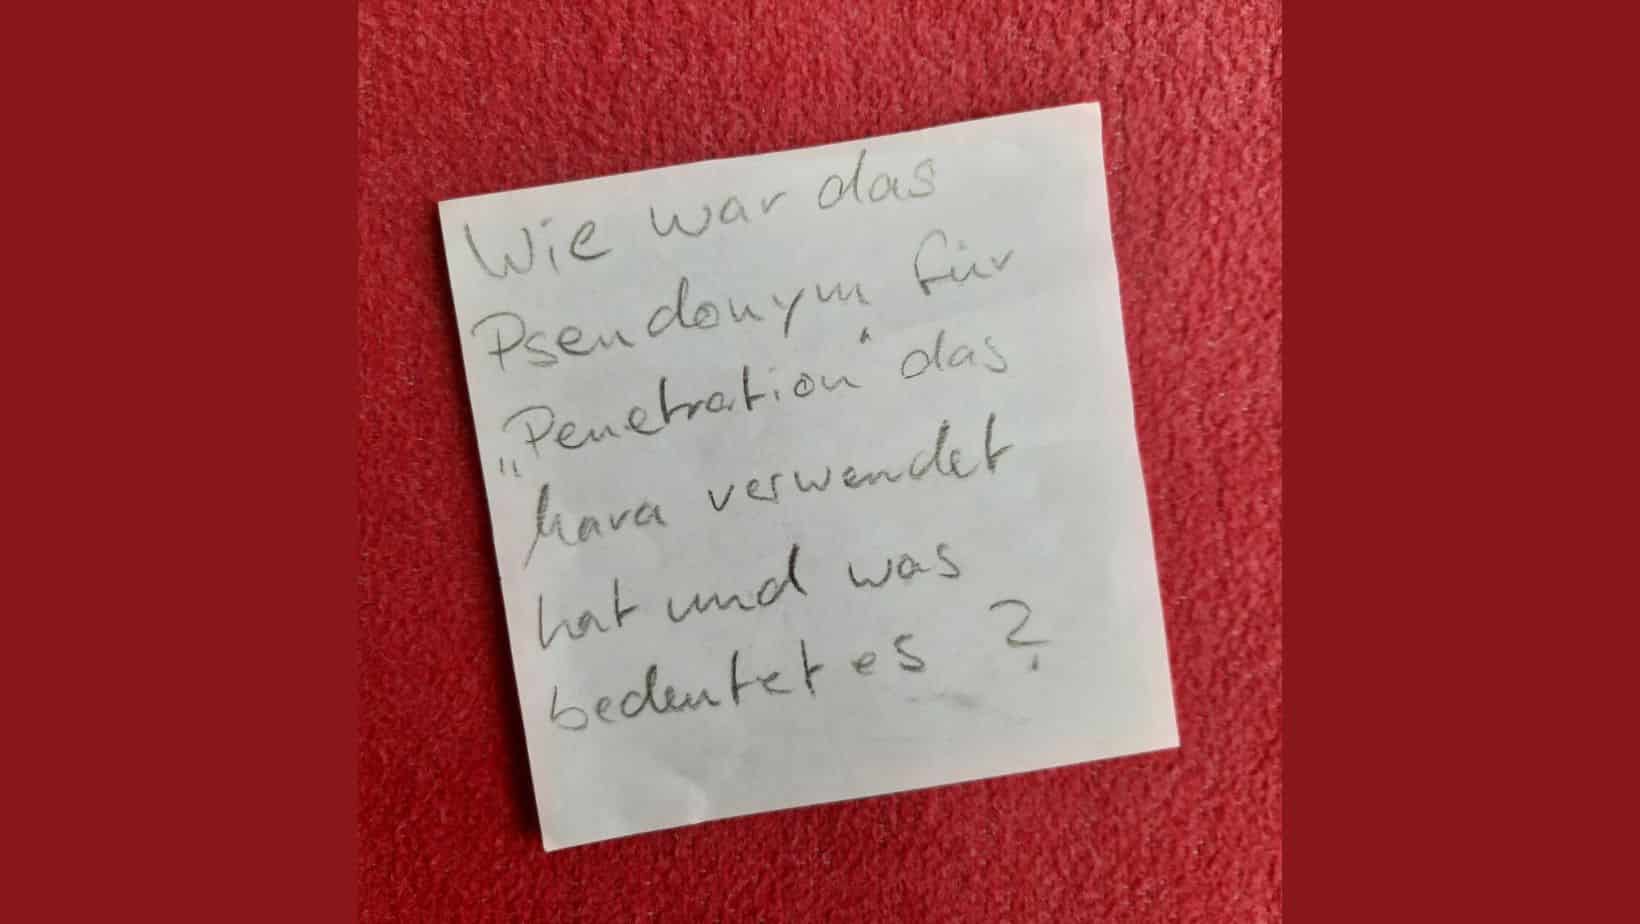 Wie war das
Pseudonym für
„Penetration" das
hara verwendet
hat und was
bedeutet es ?